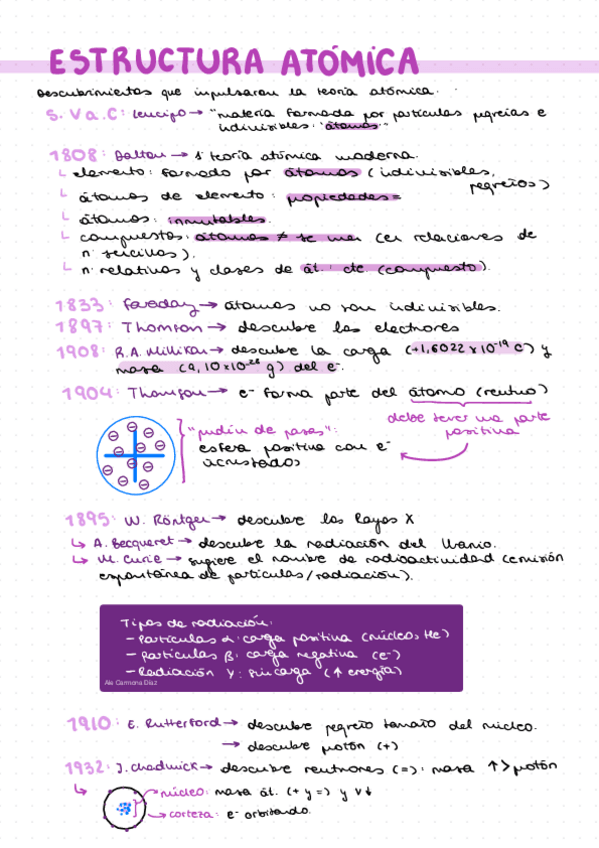 ESTRUCTURA ATÓMICA
Descubrimientos que impulsaron la teoría atómica.
S. V a.C: Leucipo → "materia formada por partículas pqreñas e
indivisibles: 'átomos'"
1808: Dalton → 1ª teoría atómica moderna.
elemento: formado por átomos (indivisibles,
pequeños)
átomos de elemento: propiedades =
átomos: inmutables.
compuestos: átomos ≠ se unen (en relaciones de
nº sencillos).
nº relativos y clases de át.: cte (compuesto).
1833: Faraday → átomos no son indivisibles.
1897: Thomson → descubre los electrones
1908: R.A. Millikan → descubre la carga (+1,6022 x 10⁻¹⁹ C) y
masa (9,10x10⁻²⁸ g) del e⁻.
1904: Thomson → e⁻ forma parte del átomo (neutro)
debe tener una parte
positiva
"pudin de pasas":
esfera positiva con e⁻
incrustados
1895: W. Röntgen → descubre los Rayos X
↳ A. Becquerel → descubre la radiación del Uranio.
↳ M. Curie → sugiere el nombre de radioactividad (emisión
espontánea de partículas/radiación).
Tipos de radiación:
- Partículas α: carga positiva (núcleos He)
- Partículas β: carga negativa (e⁻)
- Radiación γ: sin carga (↑ energía)
Ale Carmona Díaz
1910: E. Rutherford → descubre pequeño tamaño del núcleo.
→ descubre protón (+)
1932: J. Chadwick → descubre neutrones (=): masa ↑> protón
↳ núcleo: masa át. (+ y =) y V↓
corteza: e⁻ orbitando.